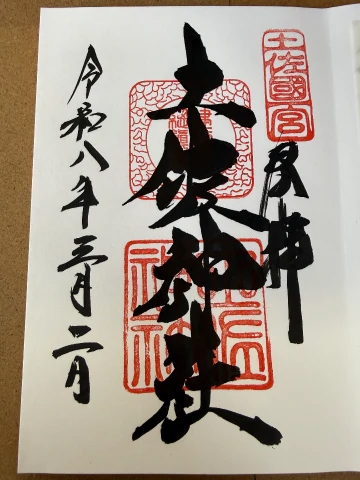 土佐國一宮
奉拝
土佐神社
土佐
神社
令和八年三月二日